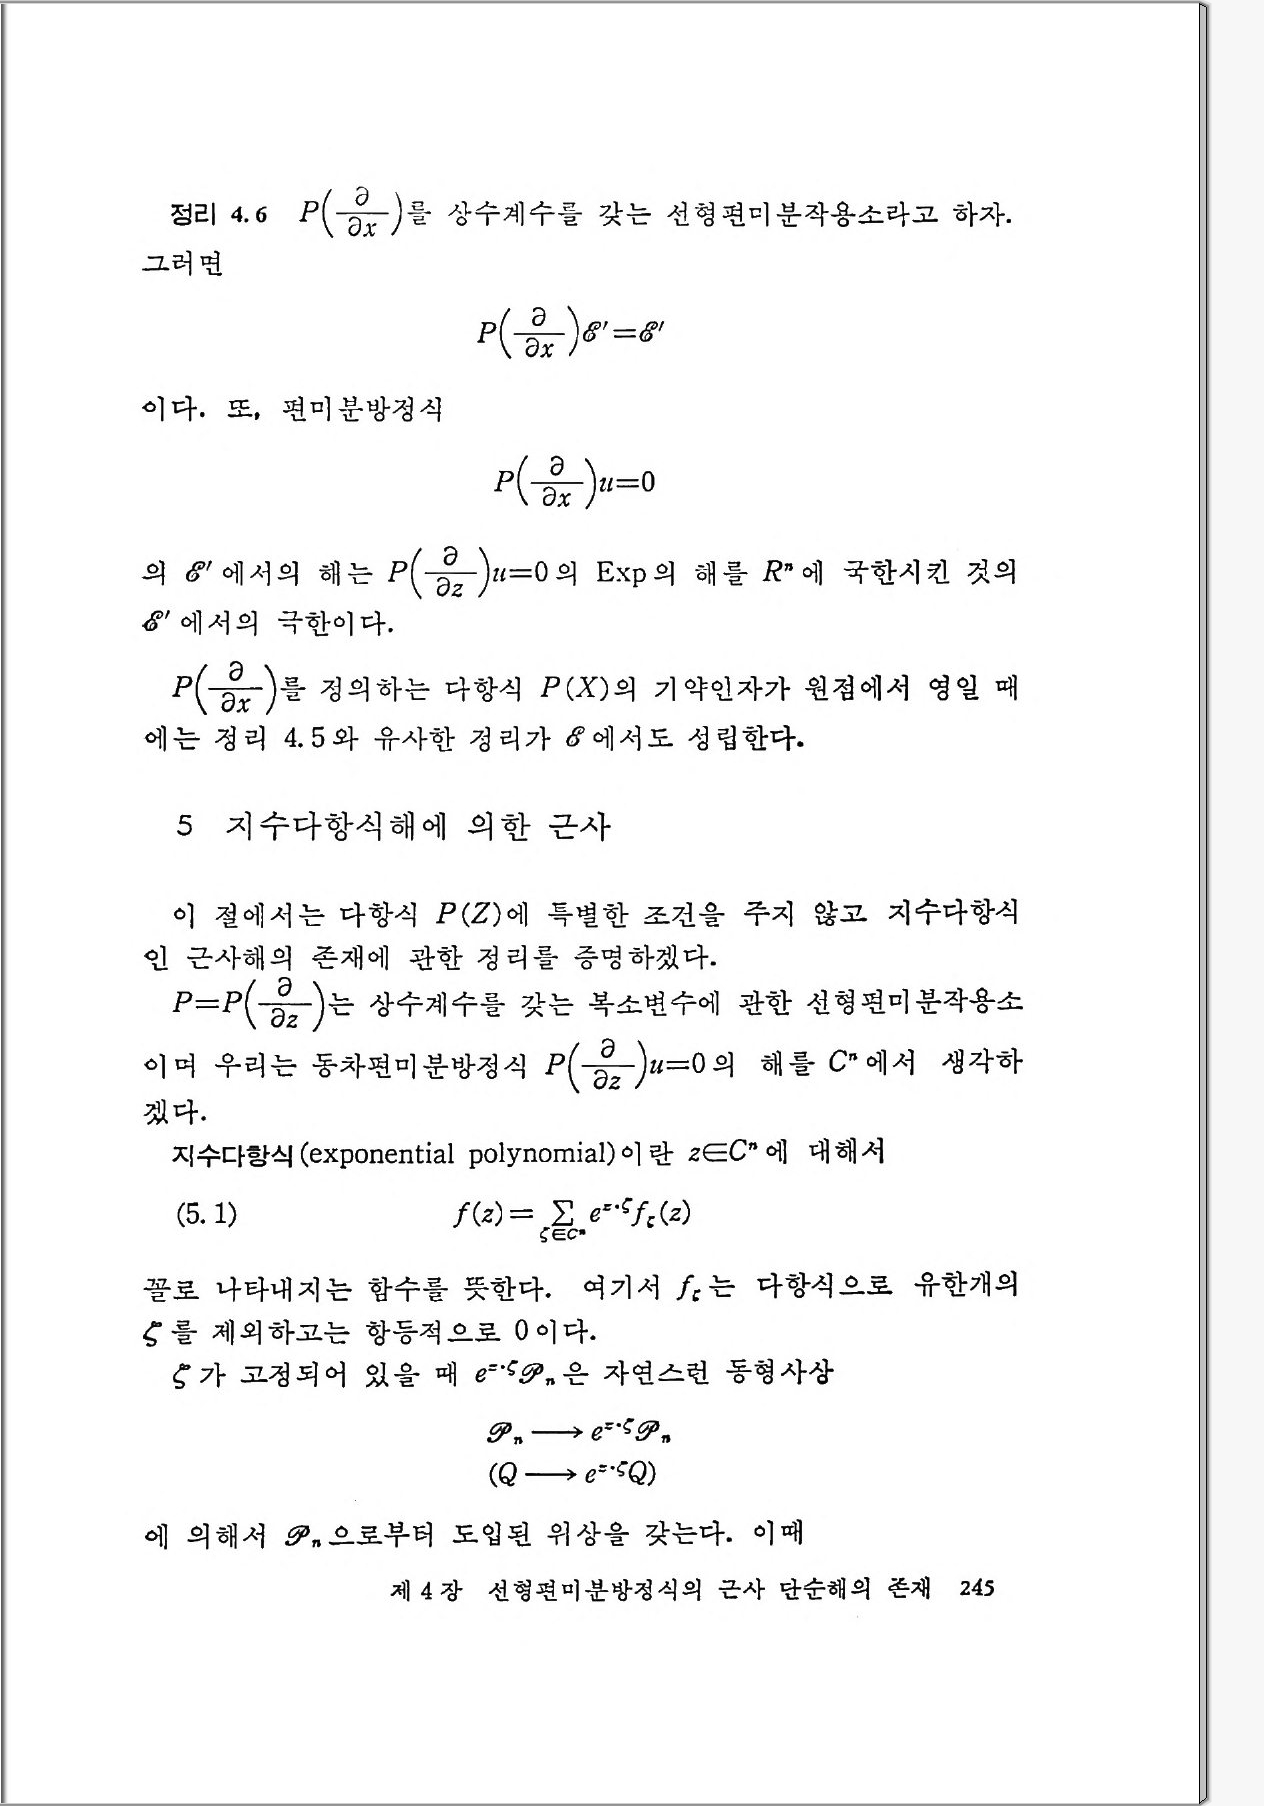 정리 4.6 P(∂/∂x)를 상수계수를 갖는 선형편미분작용소라고 하자.
그러면
P(∂/∂x)ℰ′=ℰ′
이다. 또, 편미분방정식
P(∂/∂x)u=0
의 ℰ′에서의 해는 P(∂/∂z)u=0의 Exp의 해를 Rⁿ에 국한시킨 것의
ℰ′에서의 극한이다.
P(∂/∂x)를 정의하는 다항식 P(X)의 기약인자가 원점에서 영일 때
에는 정리 4.5와 유사한 정리가 ℰ에서도 성립한다.
5 지수다항식해에 의한 근사
이 절에서는 다항식 P(Z)에 특별한 조건을 주지 않고 지수다항식
인 근사해의 존재에 관한 정리를 증명하겠다.
P=P(∂/∂z)는 상수계수를 갖는 복소변수에 관한 선형편미분작용소
이며 우리는 동차편미분방정식 P(∂/∂z)u=0의 해를 Cⁿ에서 생각하
겠다.
지수다항식(exponential polynomial)이란 z∈Cⁿ에 대해서
(5.1) f(z)=∑_{ζ∈Cⁿ} e^{z·ζ}f_ζ(z)
꼴로 나타내지는 함수를 뜻한다. 여기서 f_ζ는 다항식으로 유한개의
ζ를 제외하고는 항등적으로 0이다.
ζ가 고정되어 있을 때 e^{z·ζ}𝒫ₙ은 자연스런 동형사상
𝒫ₙ ⟶ e^{z·ζ}𝒫ₙ
(Q ⟶ e^{z·ζ}Q)
에 의해서 𝒫ₙ으로부터 도입된 위상을 갖는다. 이때
제 4 장 선형편미분방정식의 근사 단순해의 존재 245